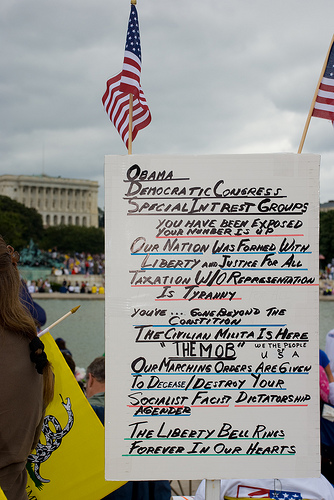 OBAMA
DEMOCRATIC CONGRESS
SPECIAL INTREST GROUPS
YOU HAVE BEEN EXPOSED
YOUR NUMBER IS UP
OUR NATION WAS FORMED WITH
LIBERTY AND JUSTICE FOR ALL
TAXATION W/O REPRESENTATION
IS TYRANNY
YOU'VE... GONE BEYOND THE
CONSTITION
THE CIVILIAN MILITA IS HERE
"THE MOB" WE THE PEOPLE
U S A
OUR MARCHING ORDERS ARE GIVEN
TO DECEASE/DESTROY YOUR
SOCIALIST FACIST DICTATORSHIP
AGENDER
THE LIBERTY BELL RINGS
FOREVER IN OUR HEARTS